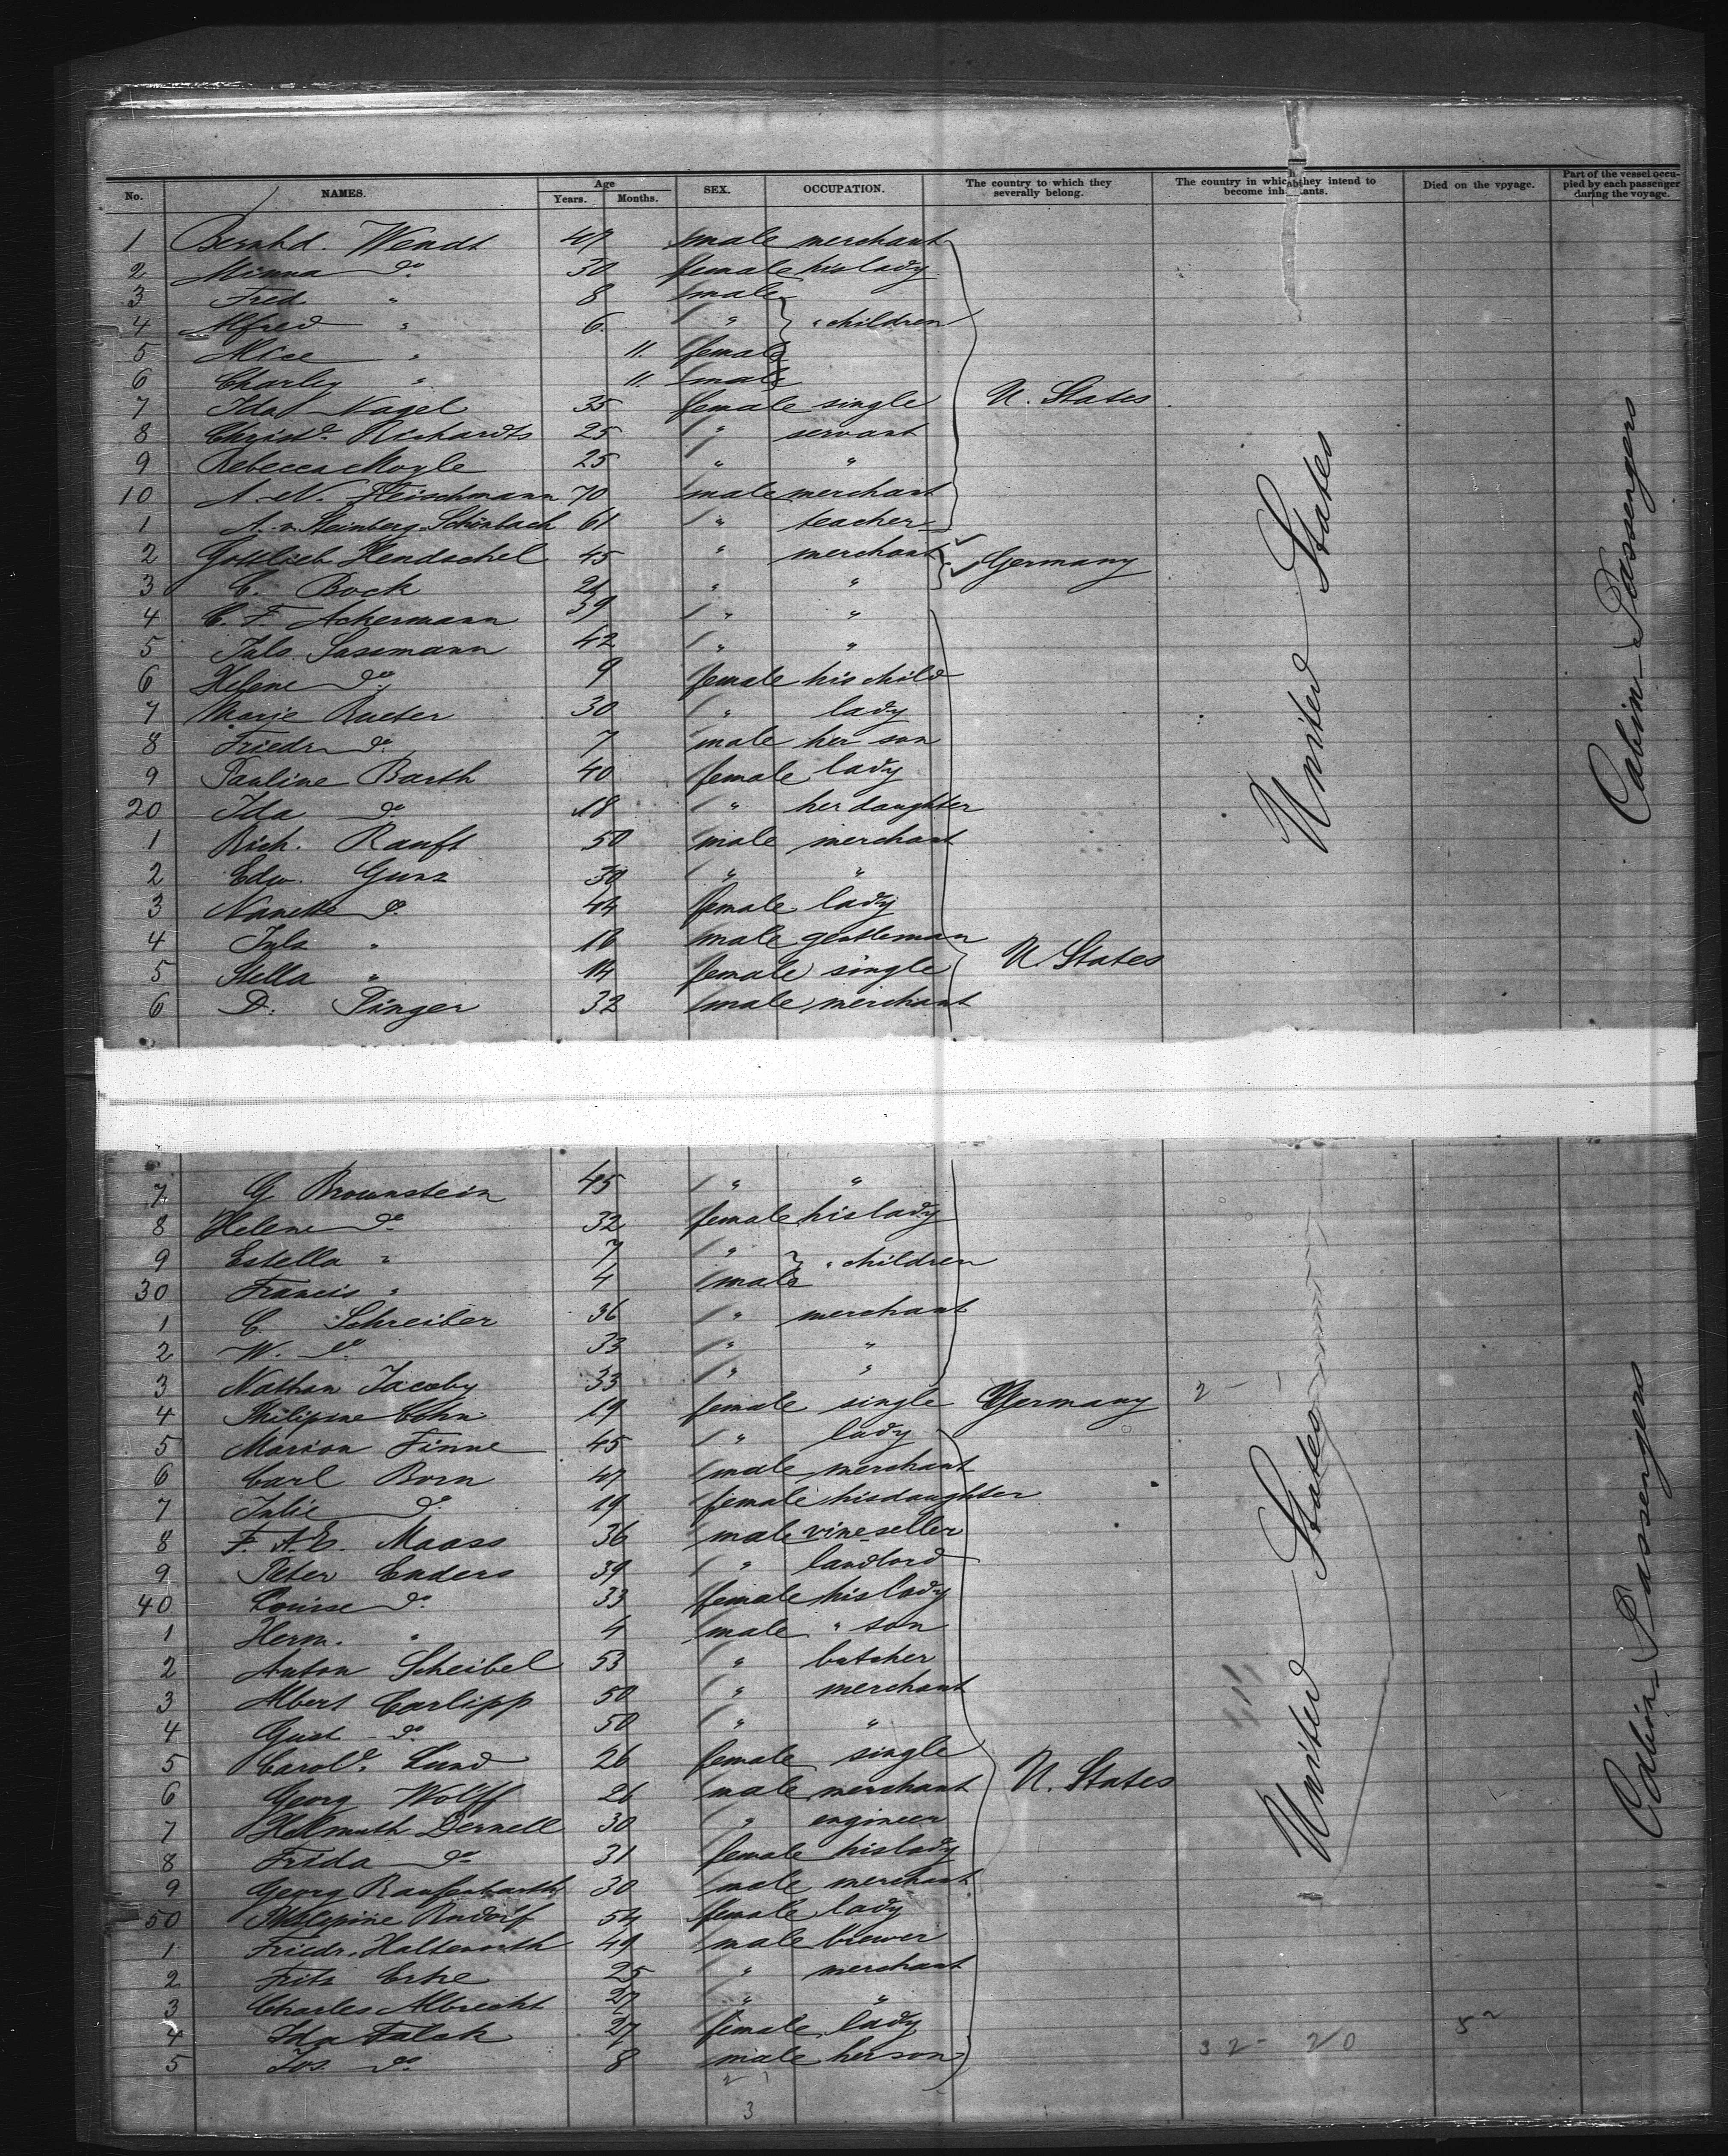 No. NAMES. Age Years. Months. SEX. OCCUPATION. The country to which they severally belong. The country in which they intend to become inhabitants. Died on the voyage. Part of the vessel occupied by each passenger during the voyage.
1 Bernhd. Wendt 47 male merchant
2 Minna do 30 female his lady
3 Fred. " 8 male
4 Alfred " 6 " " children
5 Alice " 11. female
6 Charley " 11. male
7 Ida Nagel 35 female single U. States
8 Christe. Richardts 25 " servant
9 Rebecca Moyle 25 " "
10 A. N. Fleischmann 70 male merchant
1 A. v. Steinberg-Schirbach 61 " teacher
2 Gottlieb Hendschel 45 " merchant Germany
3 C. Bock 21 " "
4 C. F. Ackermann 39 " "
5 Juls. Sassmann 42 " "
6 Helene do 9 female his child
7 Marie Rueter 30 " lady
8 Friedr. do 7 male her son
9 Pauline Barth 40 female lady
20 Ida do 18 " her daughter
1 Rich. Ranft 50 male merchant
2 Edw. Gunz 30 " "
3 Nanette do 44 female lady
4 Juls " 16 male gentleman
5 Stella " 14 female single U States
6 D. Pinger 32 male merchant
United States
Cabin Passengers
7 G Brownstein 45 " "
8 Helene do 32 female his lady
9 Estella " 7 " " children
30 Francis " 4 male
1 C. Schreiber 36 " merchant
2 W. do 33 " "
3 Nathan Jacoby 33 " "
4 Philipine Cohn 19 female single Germany 2 -
5 Marion Finne 45 " lady
6 Carl Born 47 male merchant
7 Julie do 19 female his daughter
8 F. A. E. Maass 36 male vineseller
9 Peter Enders 39 " landlord
40 Louise do 33 female his lady
1 Herm. " 4 male " son
2 Anton Scheibel 53 " butcher
3 Albert Carlipp 50 " merchant
4 Gust do 50 " "
5 Carole. Lund 26 female single
6 Georg Wolff 26 male merchant U. States
7 Hellmuth Dernell 30 " engineer
8 Frida do 31 female his lady
9 Georg Raufenbarth 30 male merchant
50 Philipine Rudolf 54 female lady
1 Friedr. Halteworth 49 male brewer
2 Fritz Erke 25 " merchant
3 Charles Albrecht 27 " "
4 Ida Falck 27 female lady
5 Jos. do 8 male her son
United States
Cabin Passengers
32 - 20
3